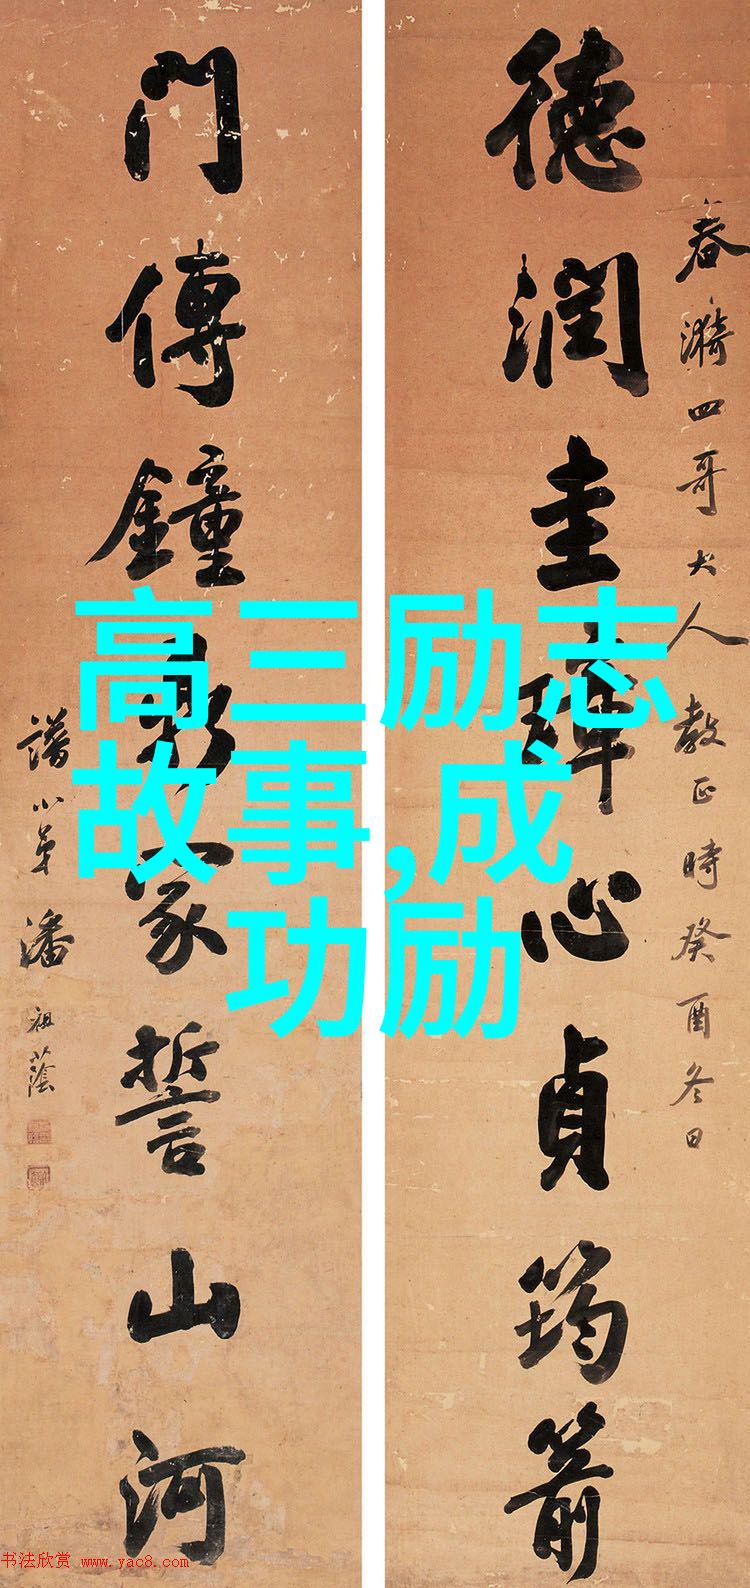 春漪四哥大人教正時癸酉冬日
德潤圭璋心貞筠箭
門傳鐘鼎家誓山河
譜小弟潘祖蔭
高三励志
故事,成
功励
书法欣赏 www.yac8.com